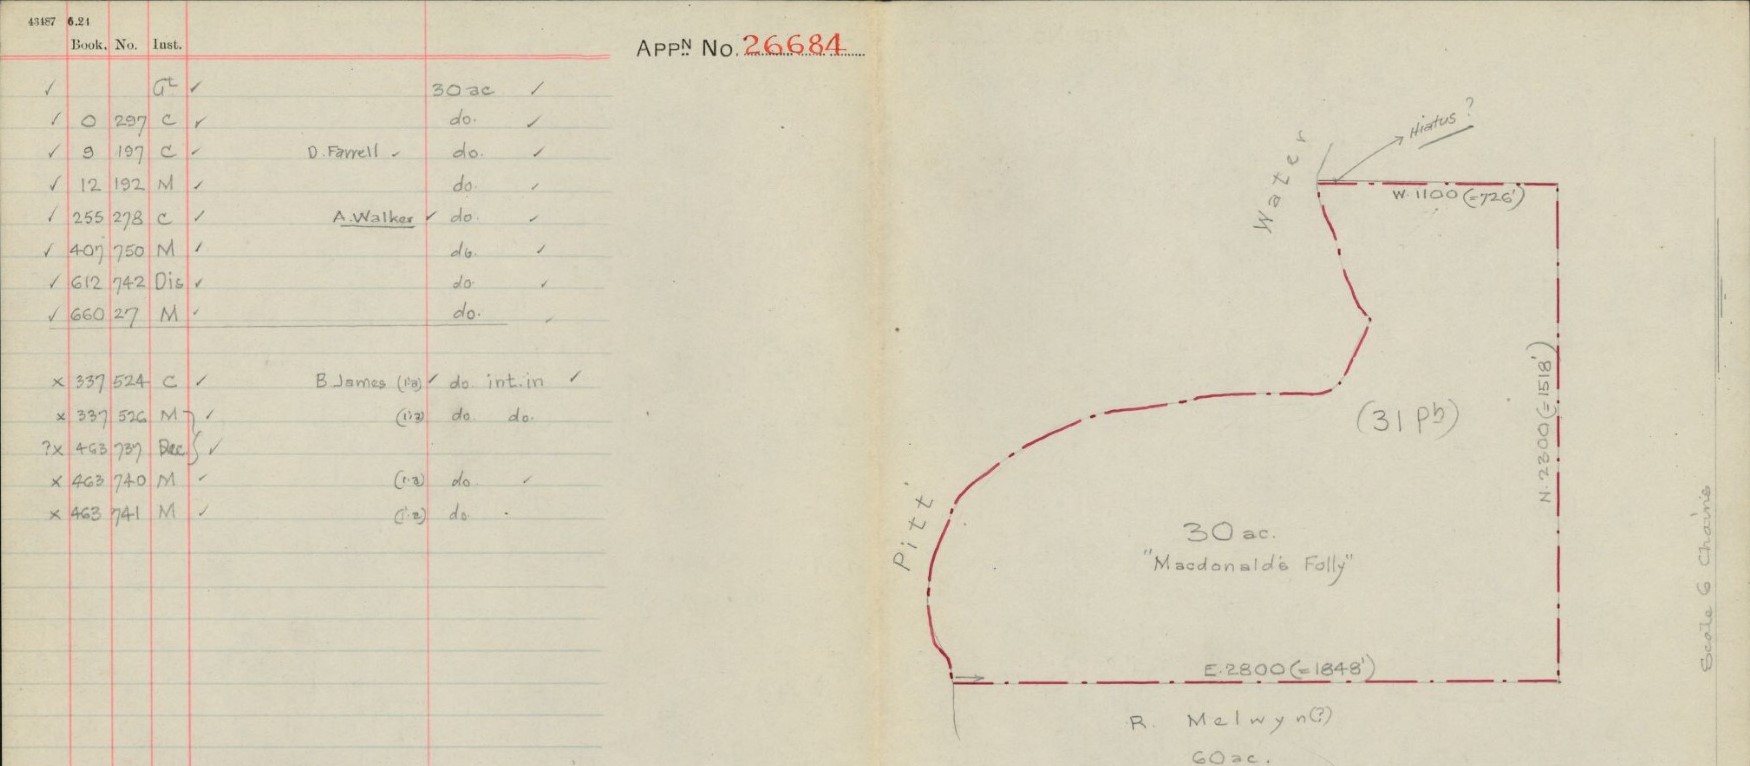 43487 6.21
Book. No. Inst.
APPN No. 26684
✓ Gt ✓ 30 ac ✓
✓ 0 297 C ✓ do. ✓
✓ 9 197 C ✓ D. Farrell ✓ do. ✓
✓ 12 192 M ✓ do. ✓
✓ 255 278 C ✓ A. Walker ✓ do. ✓
✓ 407 750 M ✓ do. ✓
✓ 612 742 Dis ✓ do. ✓
✓ 660 27 M ✓ do.
x 337 524 C ✓ B James ✓ do. int. in ✓
x 337 526 M ✓ do. do.
?x 463 737 Dec ✓
x 463 740 M ✓ do. ✓
x 463 741 M ✓ do.
Hiatus?
Water
W. 1100 (=726')
N. 2300 (=1518')
(31 Pb)
Pitt
30 ac.
"Macdonald's Folly"
Scale 6 Chains
E. 2800 (=1848')
R. Melwyn(?)
60 ac.